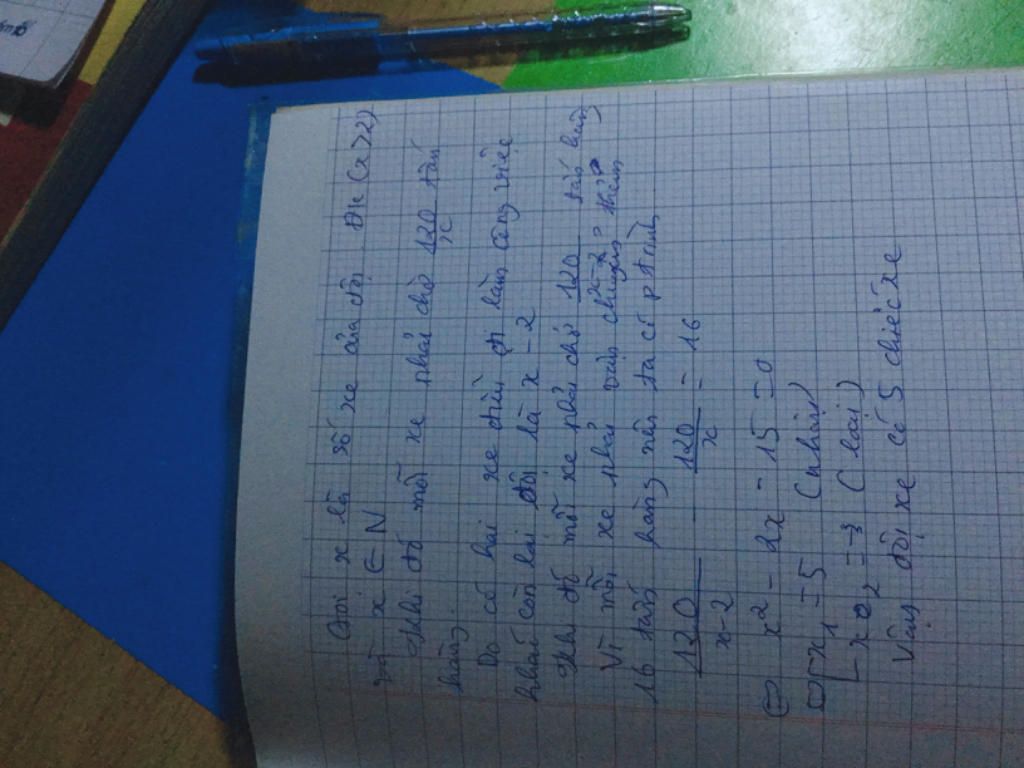 Gọi x là số xe của đội ĐK (x > 2)
và x ∈ N
Khi đó mỗi xe phải chở 120/x tấn
hàng.
Do có hai xe điều đi làm công việc
khác còn lại đội là x - 2
Khi đó mỗi xe phải chở 120/x-2 tấn hàng
Vì mỗi xe phải vận chuyển thêm
16 tấn hàng nên ta có p trình
120/x-2 - 120/x = 16
⇔ x² - 2x - 15 = 0
⇔ [ x₁ = 5 (nhận)
[ x₂ = -3 (loại)
Vậy đội xe có 5 chiếc xe